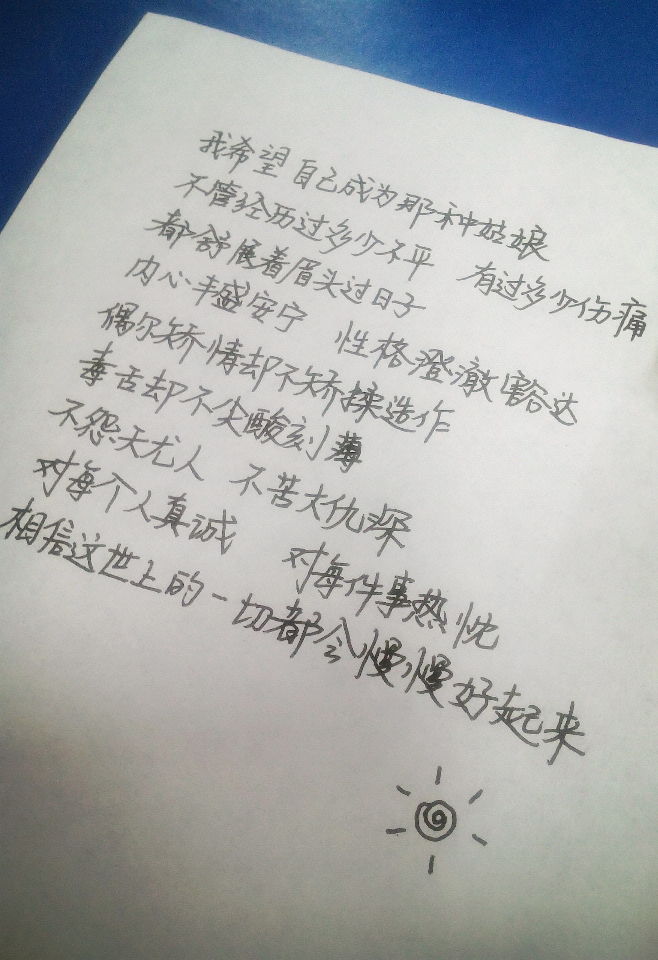 我希望自己成为那种姑娘
不管经历过多少不平 有过多少伤痛
都舒展着眉头过日子
内心丰盛安宁 性格澄澈豁达
偶尔矫情却不矫揉造作
毒舌却不尖酸刻薄
不怨天尤人 不苦大仇深
对每个人真诚 对每件事热忱
相信这世上的一切都会慢慢好起来